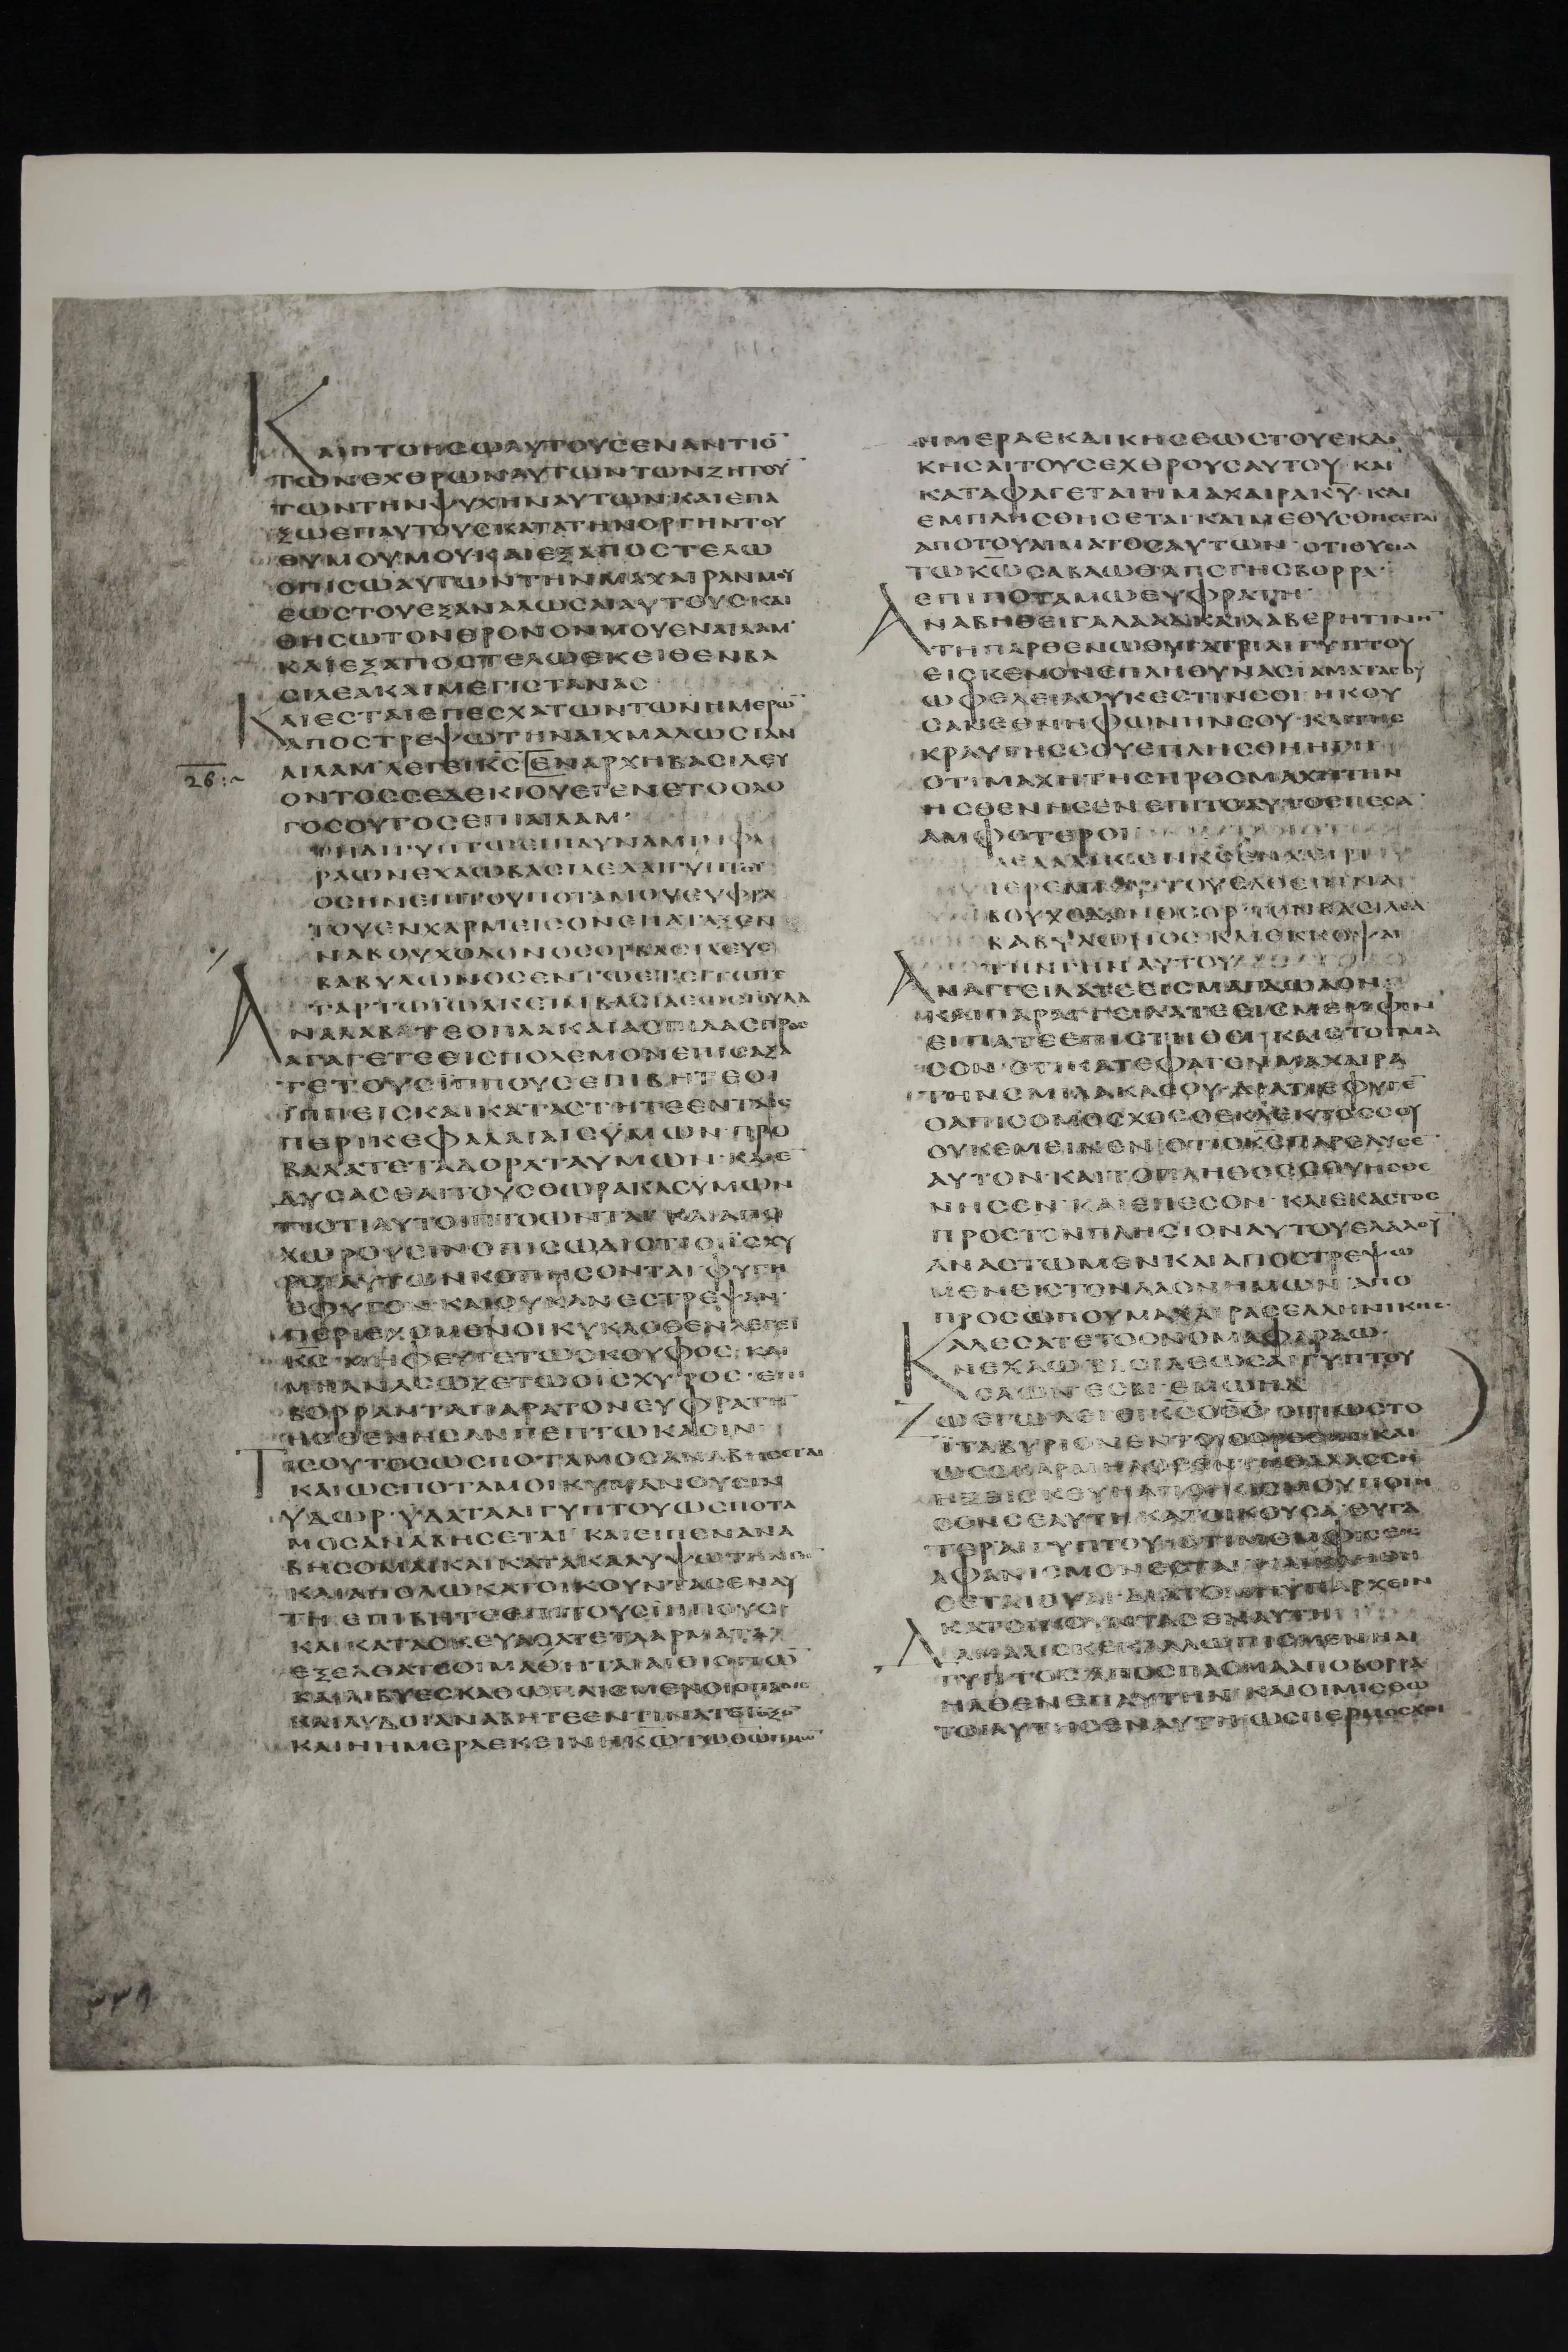 ΚΑΙΠΤΟΗΣΩΑΥΤΟΥΣΕΝΑΝΤΙΟ̅
ΤΩΝΕΧΘΡΩΝΑΥΤΩΝΤΩΝΖΗΤΟΥ̅
ΤΩΝΤΗΝΨΥΧΗΝΑΥΤΩΝ·ΚΑΙΕΠΑ
ΞΩΕΠΑΥΤΟΥΣΚΑΤΑΤΗΝΟΡΓΗΝΤΟΥ
ΘΥΜΟΥΜΟΥ·ΚΑΙΕΞΑΠΟΣΤΕΛΩ
ΟΠΙΣΩΑΥΤΩΝΤΗΝΜΑΧΑΙΡΑΝΜΟΥ
ΕΩΣΤΟΥΕΞΑΝΑΛΩΣΑΙΑΥΤΟΥΣΚΑΙ
ΘΗΣΩΤΟΝΘΡΟΝΟΝΜΟΥΕΝΑΙΛΑΜ·
ΚΑΙΕΞΑΠΟΣΤΕΛΩΕΚΕΙΘΕΝΒΑ
ΣΙΛΕΑΚΑΙΜΕΓΙΣΤΑΝΑΣ
ΚΑΙΕΣΤΑΙΕΠΕΣΧΑΤΩΝΤΩΝΗΜΕΡΩ̅
ΑΠΟΣΤΡΕΨΩΤΗΝΑΙΧΜΑΛΩΣΙΑΝ
26:~ ΑΙΛΑΜ·ΛΕΓΕΙΚ̅Σ̅ΕΝΑΡΧΗΒΑΣΙΛΕΥ
ΟΝΤΟΣΣΕΔΕΚΙΟΥΕΓΕΝΕΤΟΟΛΟ
ΓΟΣΟΥΤΟΣΕΠΙΑΙΛΑΜ·
ΡΑΩΝΕΧΑΩΒΑΣΙΛΕΑΑΙΓΥΠΤΟΥ
ΟΣΗΝΕΠΙΤΟΥΠΟΤΑΜΟΥΕΥΦΡΑ
ΤΟΥΕΝΧΑΡΜΕΙΣΟΝΕΠΑΤΑΞΕΝ
ΝΑΒΟΥΧΟΔΟΝΟΣΟΡΒΑΣΙΛΕΥΣ
ΒΑΒΥΛΩΝΟΣΕΝΤΩΕΤΕΙΤΩΤΕ
ΤΑΡΤΩΙΩΑΚΕΙΜΒΑΣΙΛΕΩΣΙΟΥΔΑ
ΑΝΑΛΑΒΕΤΕΟΠΛΑΚΑΙΑΣΠΙΔΑΣΠΡΟΣ
ΑΓΑΓΕΤΕΕΙΣΠΟΛΕΜΟΝΕΠΙΣΑΞΑ
ΤΕΤΟΥΣΪΠΠΟΥΣΕΠΙΒΗΤΕΟΙ
ΪΠΠΕΙΣΚΑΙΚΑΤΑΣΤΗΤΕΕΝΤΑΙΣ
ΠΕΡΙΚΕΦΑΛΑΙΑΙΣΫΜΩΝ·ΠΡΟ
ΒΑΛΑΤΕΤΑΔΟΡΑΤΑΥΜΩΝ·ΚΑΙΕ̅
ΔΥΣΑΣΘΑΙΤΟΥΣΘΩΡΑΚΑΣΥΜΩΝ
ΤΙΟΤΙΑΥΤΟΙΠΤΟΩΝΤΑΙ·ΚΑΙΑΠΟ
ΧΩΡΟΥΣΙΝΟΠΙΣΩΔΙΟΤΙΟΙΪΣΧΥ
ΡΟΙΑΥΤΩΝΚΟΠΗΣΟΝΤΑΙ·ΦΥΓΗ
ΕΦΥΓΟΝ·ΚΑΙΟΥΚΑΝΕΣΤΡΕΨΑΝ·
ΠΕΡΙΕΧΟΜΕΝΟΙΚΥΚΛΟΘΕΝΛΕΓΕΙ
Κ̅Σ̅·ΜΗΦΕΥΓΕΤΩΟΚΟΥΦΟΣ·ΚΑΙ
ΜΗΑΝΑΣΩΖΕΤΩΟΙΣΧΥΡΟΣ·ΕΠΙ
ΒΟΡΡΑΝΤΑΠΑΡΑΤΟΝΕΥΦΡΑΤΗ
ΗΣΘΕΝΗΣΑΝΠΕΠΤΩΚΑΣΙΝ
ΤΙΣΟΥΤΟΣΩΣΠΟΤΑΜΟΣΑΝΑΒΗΣΕΤΑΙ
ΚΑΙΩΣΠΟΤΑΜΟΙΚΥΜΑΝΟΥΣΙΝ
ΥΔΩΡ·ΥΔΑΤΑΑΙΓΥΠΤΟΥΩΣΠΟΤΑ
ΜΟΣΑΝΑΒΗΣΕΤΑΙ·ΚΑΙΕΙΠΕΝΑΝΑ
ΒΗΣΟΜΑΙΚΑΙΚΑΤΑΚΑΛΥΨΩΤΗΝΓΗ̅
ΚΑΙΑΠΟΛΩΚΑΤΟΙΚΟΥΝΤΑΣΕΝΑΥ
ΤΗΕΠΙΒΗΤΕΕΠΙΤΟΥΣΪΠΠΟΥΣ·
ΚΑΙΚΑΤΑΣΚΕΥΑΣΑΤΕΤΑΑΡΜΑΤΑ
ΕΞΕΛΘΑΤΕΟΙΜΑΧΗΤΑΙΑΙΘΙΟΠΩ̅
ΚΑΙΛΙΒΥΕΣΚΑΘΩΠΛΙΣΜΕΝΟΙΟΠΛΟΙΣ
ΚΑΙΛΥΔΟΙΑΝΑΒΗΤΕΕΝΤΙΝΑΤΕΤΟΞΟ̅
ΚΑΙΗΗΜΕΡΑΕΚΕΙΝΗΚ̅Ω̅ΤΩΘΩΗΜΩ̅
ΗΜΕΡΑΕΚΔΙΚΗΣΕΩΣΤΟΥΕΚΔΙ
ΚΗΣΑΙΤΟΥΣΕΧΘΡΟΥΣΑΥΤΟΥ·ΚΑΙ
ΚΑΤΑΦΑΓΕΤΑΙΗΜΑΧΑΙΡΑΚ̅Υ̅·ΚΑΙ
ΕΜΠΛΗΣΘΗΣΕΤΑΙΚΑΙΜΕΘΥΣΘΗΣΕΤΑΙ
ΑΠΟΤΟΥΑΙΜΑΤΟΣΑΥΤΩΝ·ΟΤΙΘΥΣΙΑ
ΤΩΚ̅Ω̅ΣΑΒΑΩΘΑΠΟΓΗΣΒΟΡΡΑ·
ΕΠΙΠΟΤΑΜΩΕΥΦΡΑΤΗ·
ΑΝΑΒΗΘΕΙΓΑΛΑΑΔΚΑΙΛΑΒΕΡΗΤΙΝΗ̅
ΤΗΠΑΡΘΕΝΩΘΥΓΑΤΡΙΑΙΓΥΠΤΟΥ
ΕΙΣΚΕΝΟΝΕΠΛΗΘΥΝΑΣΙΑΜΑΤΑΣΟΥ
ΩΦΕΛΕΙΑΟΥΚΕΣΤΙΝΣΟΙ·ΗΚΟΥ
ΣΑΝΕΘΝΗΦΩΝΗΝΣΟΥ·ΚΑΙΤΗΣ
ΚΡΑΥΓΗΣΣΟΥΕΠΛΗΣΘΗΗΓΗ·
ΟΤΙΜΑΧΗΤΗΣΠΡΟΣΜΑΧΗΤΗΝ
ΗΣΘΕΝΗΣΕΝΕΠΙΤΟΑΥΤΟΕΠΕΣΑ̅
ΑΜΦΟΤΕΡΟΙ
ΒΟΥΧΟΔΟΝΟΣΟΡΤΟΝΒΑΣΙΛΕΑ
ΒΑΒΥΛΩΝΟΣΚΑΙΕΚΚΟΨΑΙ
ΤΗΝΓΗΝΑΥΤΟΥ
ΑΝΑΓΓΕΙΛΑΤΕΕΙΣΜΑΓΔΩΛΟΝ·
ΚΑΙΠΑΡΑΓΓΕΙΛΑΤΕΕΙΣΜΕΜΦΙΝ·
ΕΙΠΑΤΕΕΠΙΣΤΗΘΕΙ·ΚΑΙΕΤΟΙΜΑ
ΣΟΝ·ΟΤΙΚΑΤΕΦΑΓΕΝΜΑΧΑΙΡΑ
ΤΗΝΣΜΙΛΑΚΑΣΟΥ·ΔΙΑΤΙΕΦΥΓΕ̅
ΟΑΠΙΣΟΜΟΣΧΟΣΟΕΚΛΕΚΤΟΣΣΟΥ
ΟΥΚΕΜΕΙΝΕΝ·ΟΤΙΟΚ̅Σ̅ΠΑΡΕΛΥΣΕ̅
ΑΥΤΟΝ·ΚΑΙΤΟΠΛΗΘΟΣΣΟΥΗΣΘΕ
ΝΗΣΕΝ·ΚΑΙΕΠΕΣΟΝ·ΚΑΙΕΚΑΣΤΟΣ
ΠΡΟΣΤΟΝΠΛΗΣΙΟΝΑΥΤΟΥΕΛΑΛΟΥ̅
ΑΝΑΣΤΩΜΕΝΚΑΙΑΠΟΣΤΡΕΨΩ
ΜΕΝΕΙΣΤΟΝΛΑΟΝΗΜΩΝ·ΑΠΟ
ΠΡΟΣΩΠΟΥΜΑΧΑΙΡΑΣΕΛΛΗΝΙΚΗΣ·
ΚΑΛΕΣΑΤΕΤΟΟΝΟΜΑΦΑΡΑΩ·
ΝΕΧΑΩΒΑΣΙΛΕΩΣΑΙΓΥΠΤΟΥ
ΣΑΩΝΕΣΒΙΕΜΩΗΔ
ΖΩΕΓΩΛΕΓΕΙΚ̅Σ̅ΟΘ̅Σ̅·ΟΤΙΩΣΤΟ
ΪΤΑΒΥΡΙΟΝΕΝΤΟΙΣΟΡΕΣΙΝ·ΚΑΙ
ΩΣΟΚΑΡΜΗΛΟΣΕΝΤΗΘΑΛΑΣΣΗ
ΗΞΕΙΣΚΕΥΗΑΠΟΙΚΙΣΜΟΥΠΟΙΗ
ΣΟΝΣΕΑΥΤΗΚΑΤΟΙΚΟΥΣΑ·ΘΥΓΑ
ΤΕΡΑΙΓΥΠΤΟΥ·ΟΤΙΜΕΜΦΙΣΕΙΣ
ΑΦΑΝΙΣΜΟΝΕΣΤΑΙ·ΚΑΙΚΛΗΘΗ
ΣΕΤΑΙΟΥΑΙ·ΔΙΑΤΟΜΗΥΠΑΡΧΕΙΝ
ΚΑΤΟΙΚΟΥΝΤΑΣΕΝΑΥΤΗ
ΔΑΜΑΛΙΣΚΕΚΑΛΛΩΠΙΣΜΕΝΗΑΙ
ΓΥΠΤΟΣΑΠΟΣΠΑΣΜΑΑΠΟΒΟΡΡΑ
ΗΛΘΕΝΕΠΑΥΤΗΝ·ΚΑΙΟΙΜΙΣΘΩ
ΤΟΙΑΥΤΗΣΕΝΑΥΤΗΩΣΠΕΡΜΟΣΧΟΙ